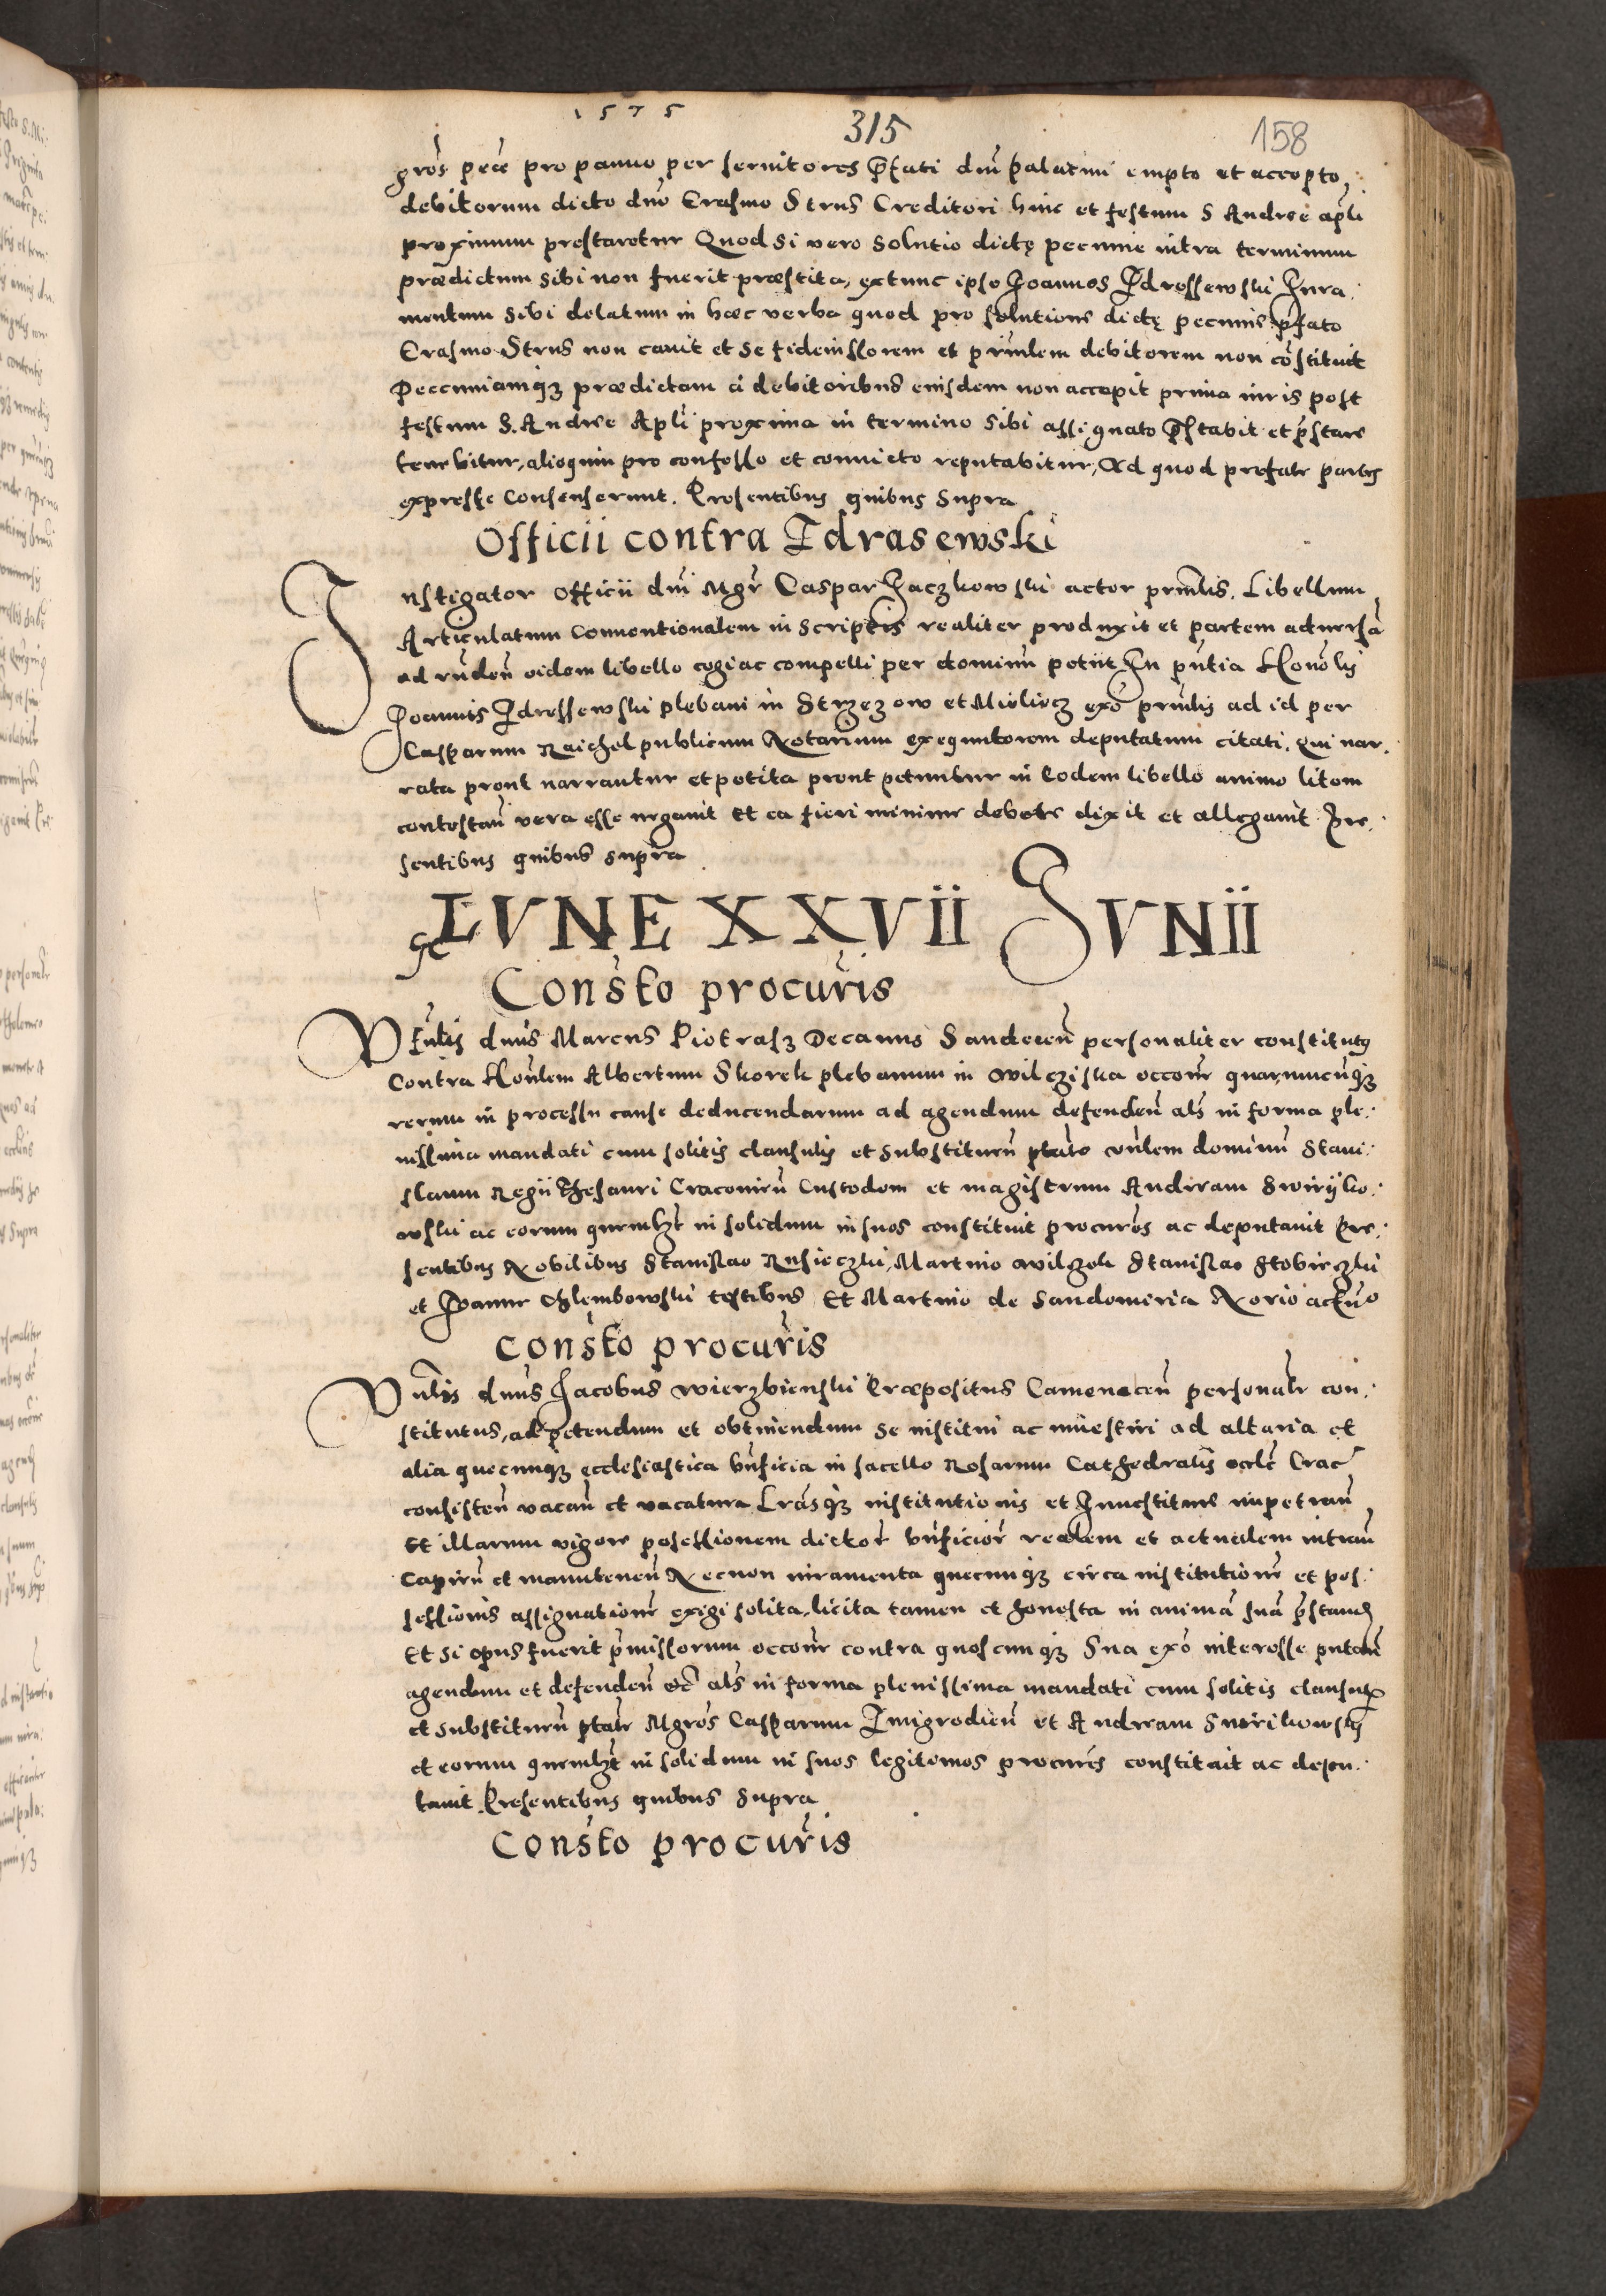 1575
315
158
grõs pecẽ pro panno per seruitores p̃fati dnĩ palatini empto et accepto,
debitorum dicto dnõ Erasmo Strus Creditori hinc et festum S Andree apl̃i
proximum prestaretur Quod si vero solutio dictę pecunie intra terminum
prædictum sibi non fuerit præstita, extunc ipse Joannes Idressewski Iura:
mentum sibi delatum in hæc verba quod pro solutione dictę pecunie p̃fato
Erasmo Strus non cauit et se fideiussorem et prin̄lem debitorem non cõstituit
Peccuniamqz prædictam a debitoribus eiusdem non accepit prima iuris post
festum S. Andree Apl̃i proxima in termino sibi assignato p̃stabit et p̃stare
tenebitur, alioquin pro confesso et conuicto reputabitur, Ad quod prefate partes
expresse consenserunt. Presentibus quibus supra
Officii contra Idrasewski
Instigator officii dnĩ Mgr̃ Caspar Jaczkowski actor prin̄lis. Libellum
Articulatum Conuentionalem in scriptis realiter produxit et partem aduersã
ad rñdeñ eidem libello cogi ac compelli per dominũ petiit In pñtia Honõlis
Joannis Idressewski plebani in Strzezow et Mieliecz exõ prin̄lis ad id per
Casparum Raichel publicum Notarium exequutorem deputatum citati. Qui nar:
rata prout narrantur et petita prout petuntur in Eodem libello animo litem
contestañ vera esse negauit Et ea fieri minime debere dixit et allegauit Pre:
sentibus quibus supra
LVNE XXVII JVNII
Consto procuris
Vẽnlis dnũs Marcus Piotrasz Decanus Sandeceñ personaliter constitutus
Contra Honl̃em Albertum Skorek plebanum in Wilcziska occoñe quarumcũqz
rerum in processu cause deducendarum ad agendum defendeñ als̃ in forma ple:
nissima mandati cum solitis clausulis et substitueñ ptate vñlem dominũ Stani:
slaum Regii Thesauri Cracouieñ Custodem et magistrum Andream Swiryko:
wski ac eorum quemlibet in solidum in suos constituit procurẽs ac deputauit Pre:
sentibus Nobilibus Stanislao Rusieczki, Martino Wilczek Stanislao Stobieczki
et Joanne Chlembowski testibus Et Martino de Sandomiria Norio actũo
Consto procuris
Vñlis dnũs Jacobus Wierzbienski Præpositus Cameneceñ personalr̃ con:
stitutus, ad petendum et obtinendum se institui ac inuestiri ad altaria et
alia quecunqz ecclesiastica bñficia in sacello Rosarum Cathedralis ecclẽ Crac̃
consisteñ vacañ et vacatura Lrãsqz institutionis et Inuestiture impetrañ
Et illarum vigore posessionem dictor̃ bñficior̃ realem et actualem intrañ
Capieñ et manuteneñ Necnon iuramenta quecunqz circa institutionẽ et pos:
sessionis assignationẽ exigi solita, licita tamen et honesta in animã suã p̃stand
Et si opus fuerit p̃missorum occoñe contra quoscunqz Sua exõ interesse putañ
agendum et defendeñ ec̃ als̃ in forma plenissima mandati cum solitis clausulis
et substitueñ ptate Mgrõs Casparum Imigrodieñ et Andream Swirikowsky
et eorum quemlibet in solidum in suos legitimos procurẽs constituit ac depu:
tauit. Presentibus quibus supra
Consto procuris